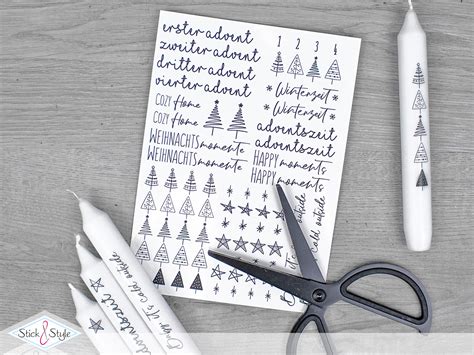 erster advent
zweiter advent
dritter advent
vierter advent
COZY Home
COZY Home
WEIHNACHTSmomente
WEIHNACHTSmomente
1 2 3 4
* Winterzeit *
* Winterzeit *
adventszeit
adventszeit
HAPPY moments
HAPPY moments
cold outside
adventszeit
it's cold outside
Stick & Style